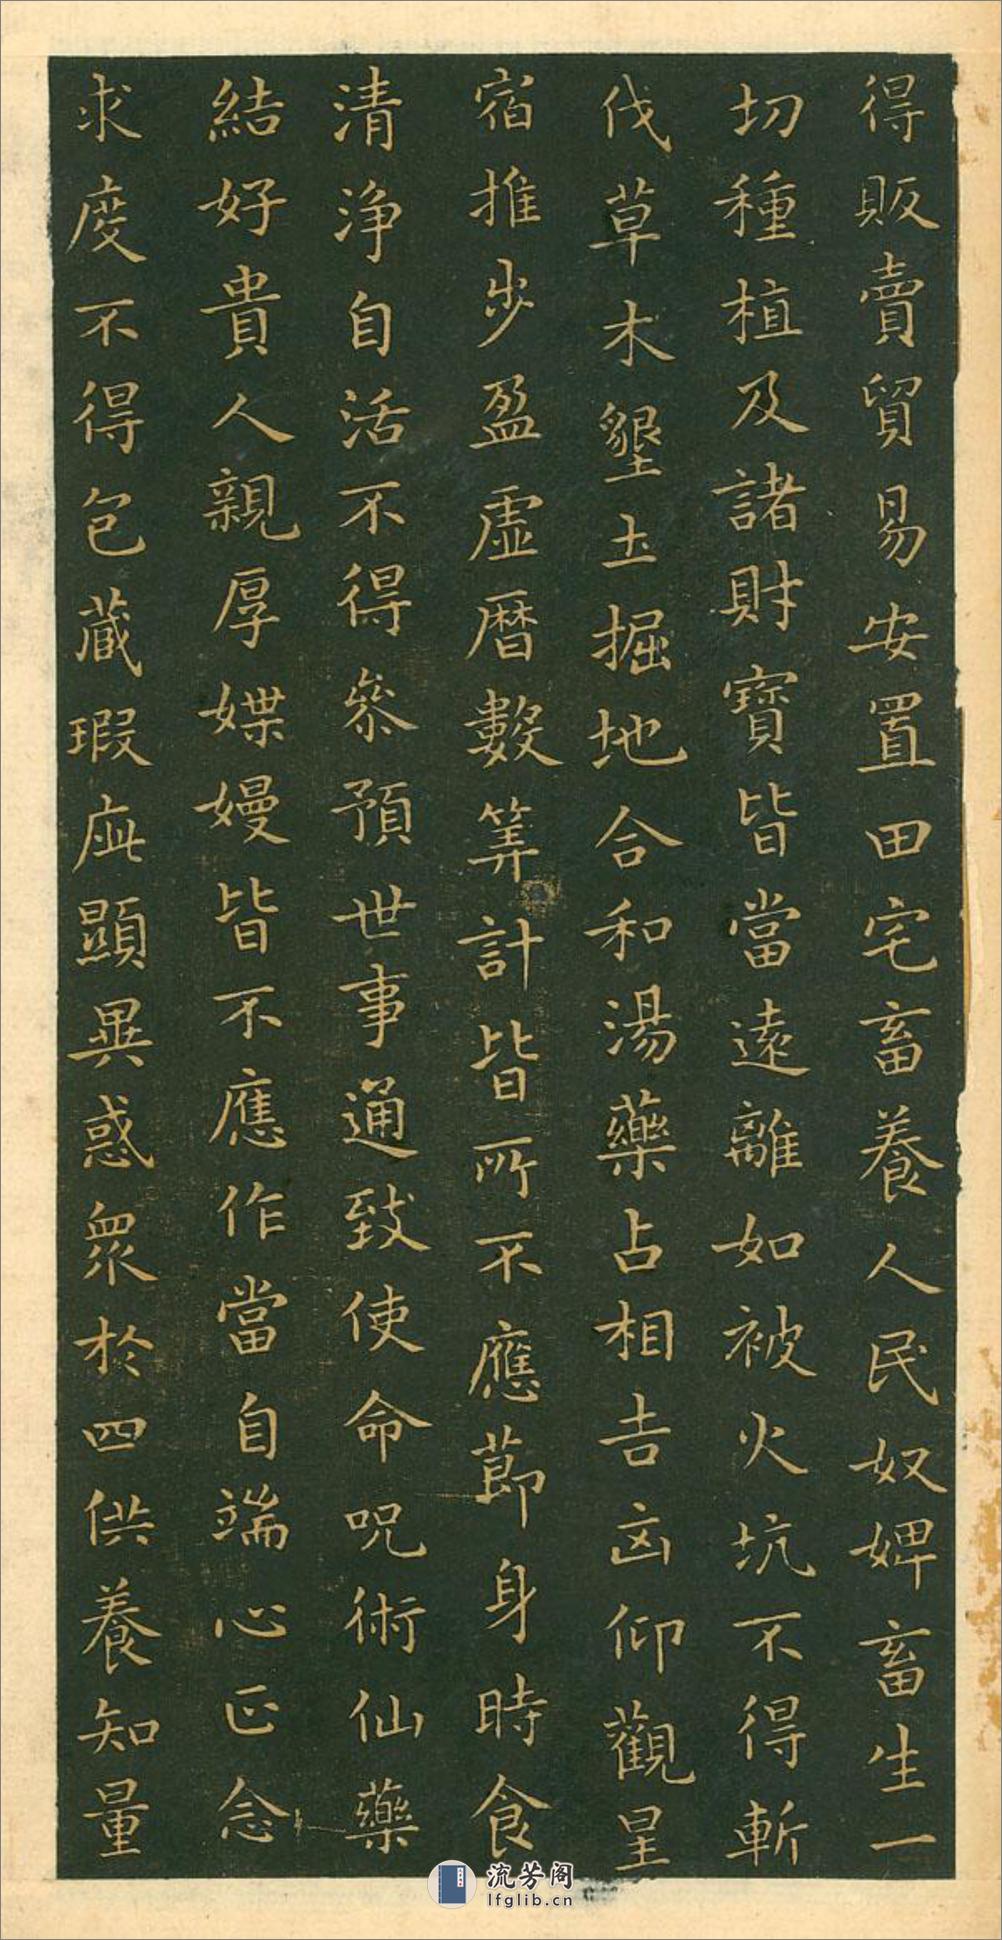 得販賣貿易安置田宅畜養人民奴婢畜生一
切種植及諸財寶皆當遠離如被火坑不得斬
伐草木墾土掘地合和湯藥占相吉凶仰觀星
宿推步盈虛曆數筭計皆所不應節身時食
清淨自活不得參預世事通致使命呪術仙藥
結好貴人親厚媟嫚皆不應作當自端心正念
求度不得包藏瑕疵顯異惑衆於四供養知量
流芳阁
lfglib.cn